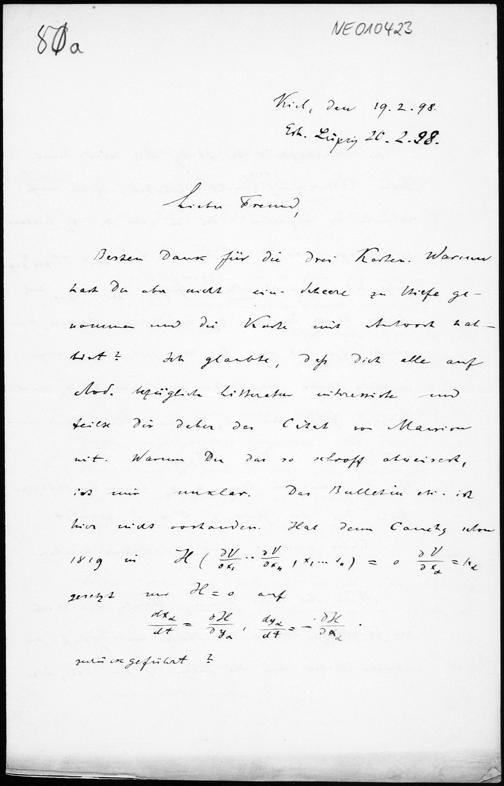 NEO10423
87a
Kiel, den 19.2.98.
Erh. Leipzig 20.2.98.
Lieber Freund,
Besten Dank für die drei Karten. Warum
hast Du aber nicht eine Scheere zu Hilfe ge-
nommen und die Karte mit Antwort hal-
birt? Ich glaubte, daß Dich alle auf
Mod. bezügliche Litteratur interessirte und
teilte Dir daher das Citat von Mansion
mit. Warum Du das so schroff abweisest,
ist mir unklar. Das Bulletin etc. ist
hier nicht vorhanden. Hat denn Cauchy schon
1819 in H(∂V/∂x₁ ·· ∂V/∂xₙ, x₁ ... xₙ) = 0 ∂V/∂x_α = y_α
gesetzt und H = 0 auf
dx_α/dt = ∂H/∂y_α, dy_α/dt = -∂H/∂x_α.
zurückgeführt?